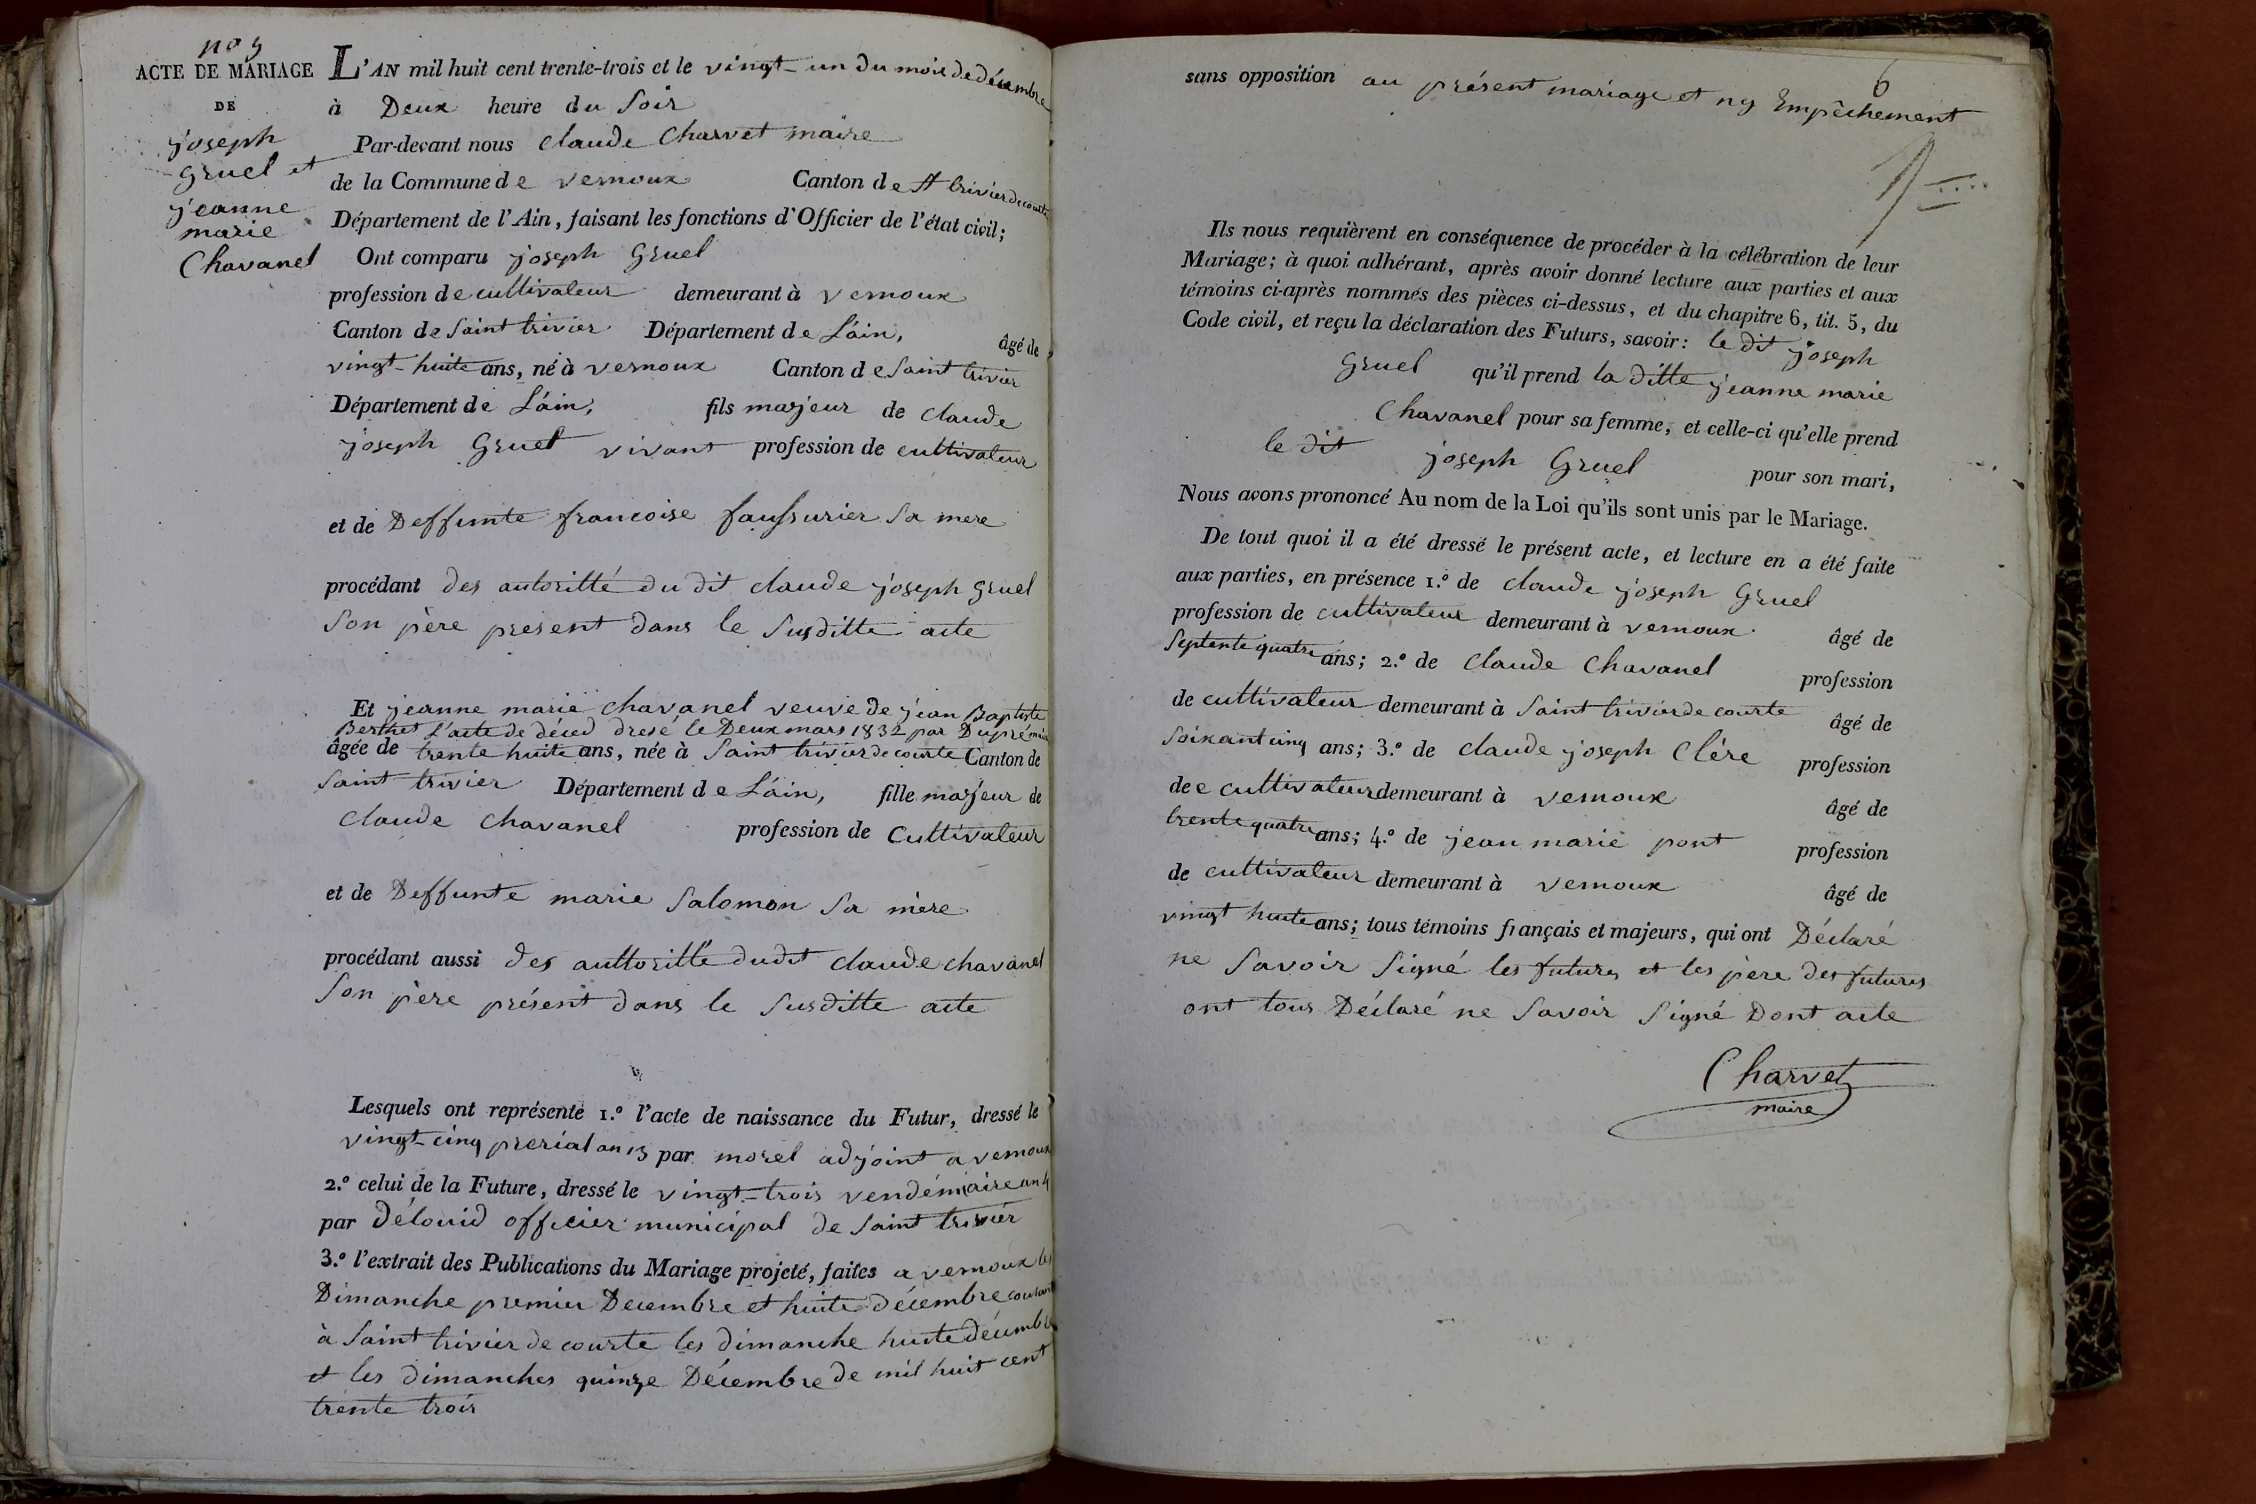 no 9
ACTE DE MARIAGE
DE
joseph
Gruel et
jeanne
marie
Chavanel
L'AN mil huit cent trente-trois et le vingt-un du mois de décembre
à Deux heure du Soir
Par-devant nous Claude Charvet maire
de la Commune de vernoux Canton de St trivier de courte
Département de l'Ain, faisant les fonctions d'Officier de l'état civil;
Ont comparu joseph Gruel
profession de cultivateur demeurant à vernoux
Canton de Saint trivier Département de L'ain, âgé de
vingt-huite ans, né à vernoux Canton de Saint trivier
Département de L'ain, fils majeur de Claude
joseph Gruel vivant profession de cultivateur
et de Deffunte francoise faussurier Sa mere
procédant des autoritté du dit claude joseph Gruel
Son père present dans le Susditte acte
Et jeanne marie chavanel veuve de jean Baptiste
Berthet L'acte de déced dresé le Deux mars 1832 par Dupré maire
âgée de trente huite ans, née à Saint trivier de courte Canton de
Saint trivier Département de L'ain, fille majeur de
Claude Chavanel profession de Cultivateur
et de Deffunte marie Salomon Sa mère
procédant aussi des auttoritté dudit Claude chavanel
Son père présent dans le Susditte acte
Lesquels ont représenté 1.° l'acte de naissance du Futur, dressé le
vingt-cinq prerial an 13 par morel adjoint a vernoux
2.° celui de la Future, dressé le vingt-trois vendémiaire an 4
par Délouid officier municipal de Saint trivier
3.° l'extrait des Publications du Mariage projeté, faites a vernoux les
Dimanche premier Decembre et huite décembre courant
à Saint trivier de courte les dimanche huite décembre
et les dimanches quinze Décembre de mil huit cent
trente trois
6
sans opposition au présent mariage et ny Empêchement
Ils nous requièrent en conséquence de procéder à la célébration de leur
Mariage; à quoi adhérant, après avoir donné lecture aux parties et aux
témoins ci-après nommés des pièces ci-dessus, et du chapitre 6, tit. 5, du
Code civil, et reçu la déclaration des Futurs, savoir: le dit joseph
Gruel qu'il prend la ditte jeanne marie
Chavanel pour sa femme, et celle-ci qu'elle prend
le dit joseph Gruel pour son mari,
Nous avons prononcé Au nom de la Loi qu'ils sont unis par le Mariage.
De tout quoi il a été dressé le présent acte, et lecture en a été faite
aux parties, en présence 1.° de claude joseph Gruel
profession de cultivateur demeurant à vernoux âgé de
Septente quatre ans; 2.° de Claude Chavanel profession
de cultivateur demeurant à Saint trivier de courte âgé de
soixant cinq ans; 3.° de claude joseph Clère profession
de e cultivateur demeurant à vernoux âgé de
trente quatre ans; 4.° de jean marie pont profession
de cultivateur demeurant à vernoux âgé de
vingt huite ans; tous témoins français et majeurs, qui ont Déclaré
ne Savoir Signé les futurs et les père des futures
ont tous Déclaré ne Savoir Signé Dont acte
Charvet
maire